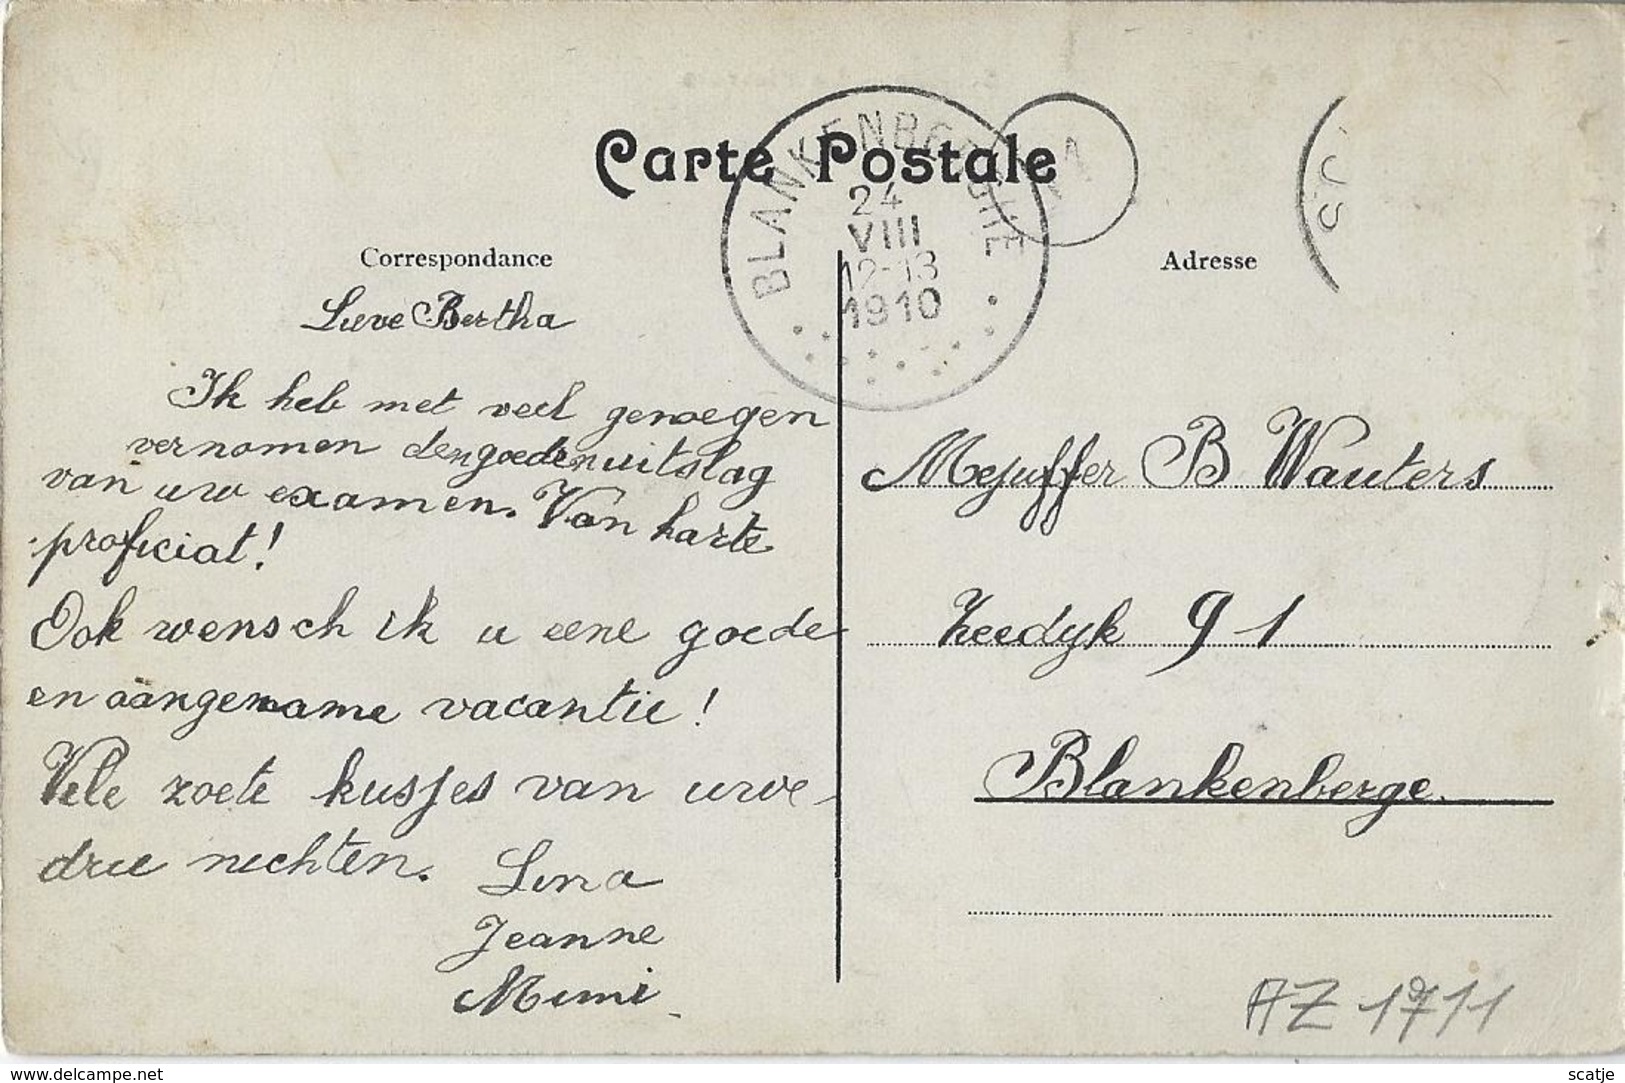 Carte Postale
BLANKENBERGHE
24
VIII
12-13
1910
Correspondance
Lieve Bertha
Ik heb met veel genoegen
vernomen den goeden uitslag
van uw examen. Van harte
proficiat!
Ook wensch ik u eene goede
en aangename vacantie!
Vele zoete kusjes van uwe
drie nichten.
Lina
Jeanne
Mimi
Adresse
Mejuffer B Wauters
Zeedyk 91
Blankenberge.
AZ 1711
www.delcampe.net
scatje